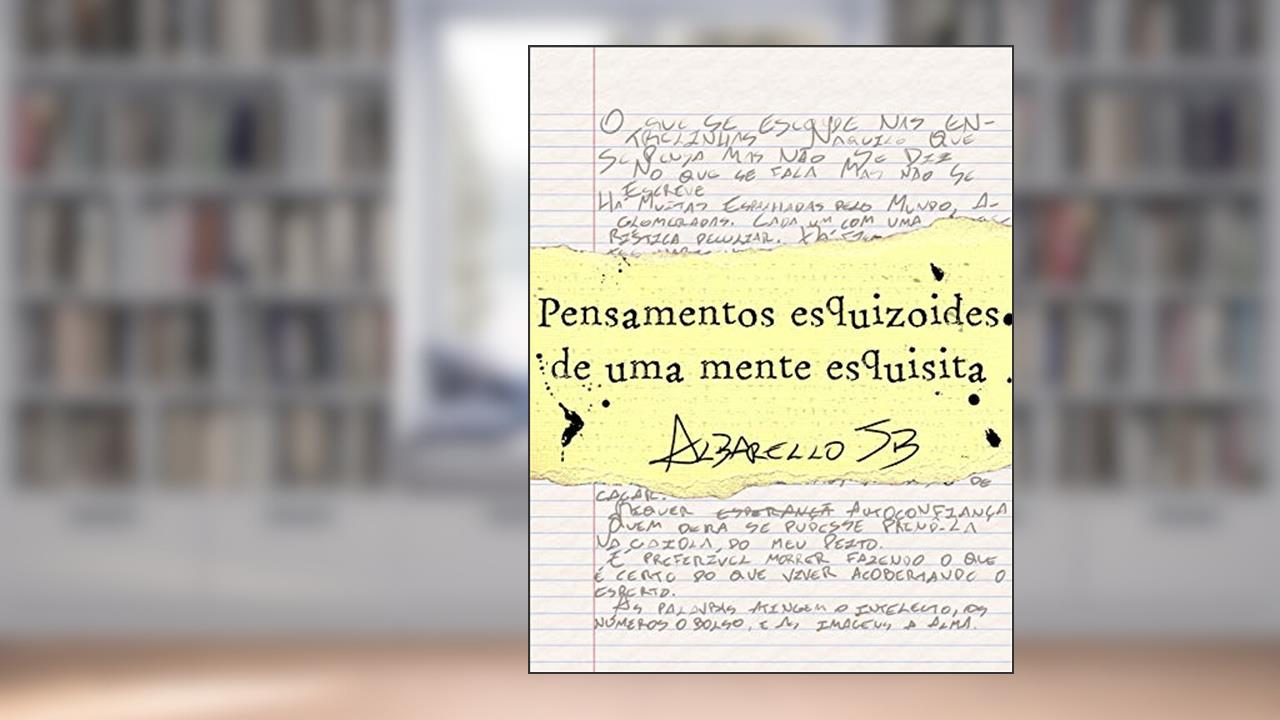 O QUE SE ESCONDE NAS EN-
TRELINHAS NAQUILO QUE
SE PENSA MAS NÃO SE DIZ
NO QUE SE FALA MAS NÃO SE
ESCREVE
HÁ MUITAS ESPALHADAS PELO MUNDO, A-
GLOMERADAS. CADA UM COM UMA
RÍSTICA PECULIAR. HÁ
Pensamentos esquizoides
de uma mente esquisita
ALBARELLO SB
DE
CAÇAR.
REQUER ESPERANÇA AUTOCONFIANÇA
QUEM DERA SE PUDESSE PRENDÊ-LA
NA GAIOLA, DO MEU PEITO.
É PREFERÍVEL MORRER FAZENDO O QUE
É CERTO DO QUE VIVER ACOBERTANDO O
ESPERTO.
AS PALAVRAS ATINGEM O INTELECTO, OS
NÚMEROS O BOLSO, E AS IMAGENS A ALMA.